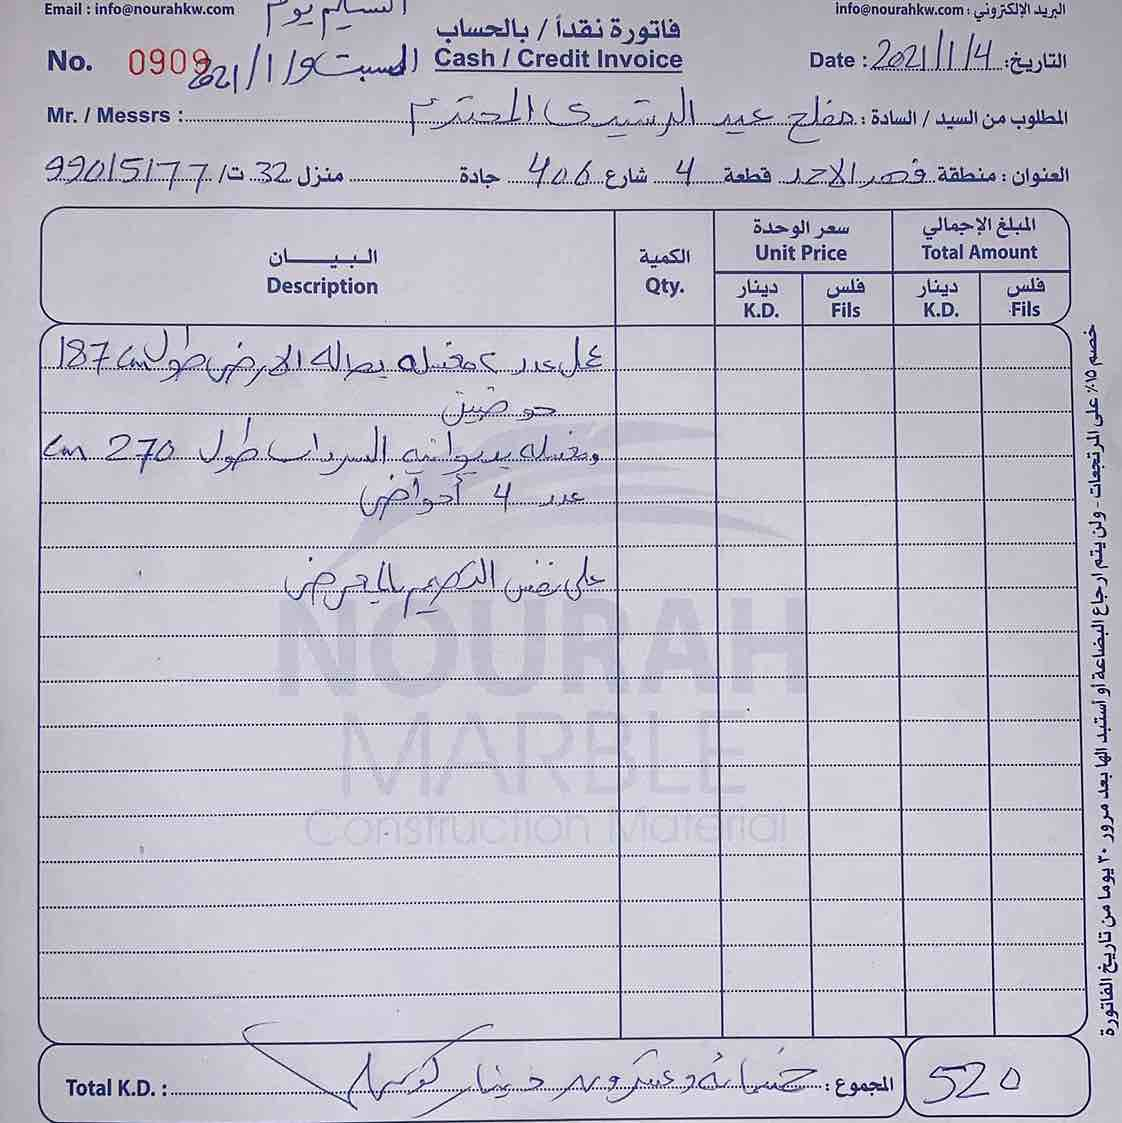 Email : info@nourahkw.com
البريد الإلكتروني : info@nourahkw.com
يوم
فاتورة نقداً / بالحساب
Cash / Credit Invoice
No. 0909
السبت 2021/1/9
Date : 2021/1/4 التاريخ:
Mr. / Messrs : مفلح عيد الرشيدي المحترم المطلوب من السيد / السادة :
العنوان : منطقة قطعة 4 شارع 406 جادة منزل 32 ت/ 99015177
البـيـــــــان
Description
الكمية
Qty.
سعر الوحدة
Unit Price
المبلغ الإجمالي
Total Amount
دينار
K.D.
فلس
Fils
دينار
K.D.
فلس
Fils
عمل عدد ٢ مغسله بصاله الارضي طول 187 cm
حوضين
ومغسله بديوانيه السرداب طول 270 cm
عدد 4 أحواض
على نفس التصميم بالمعرض
NOURAH
MARBLE
Construction Material
خصم ١٥٪ على المرتجعات - ولن يتم ارجاع البضاعة أو أستبدالها بعد مرور ٣٠ يوما من تاريخ الفاتورة
Total K.D. : خمسمائة وعشرون دينار المجموع :
520